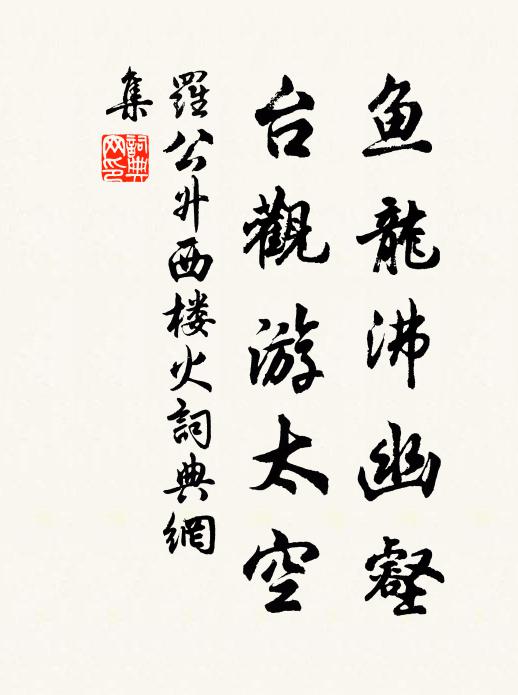 鱼龍沸幽壑
台觀游太空
羅公升西楼火詞典網
集
詞典
网印